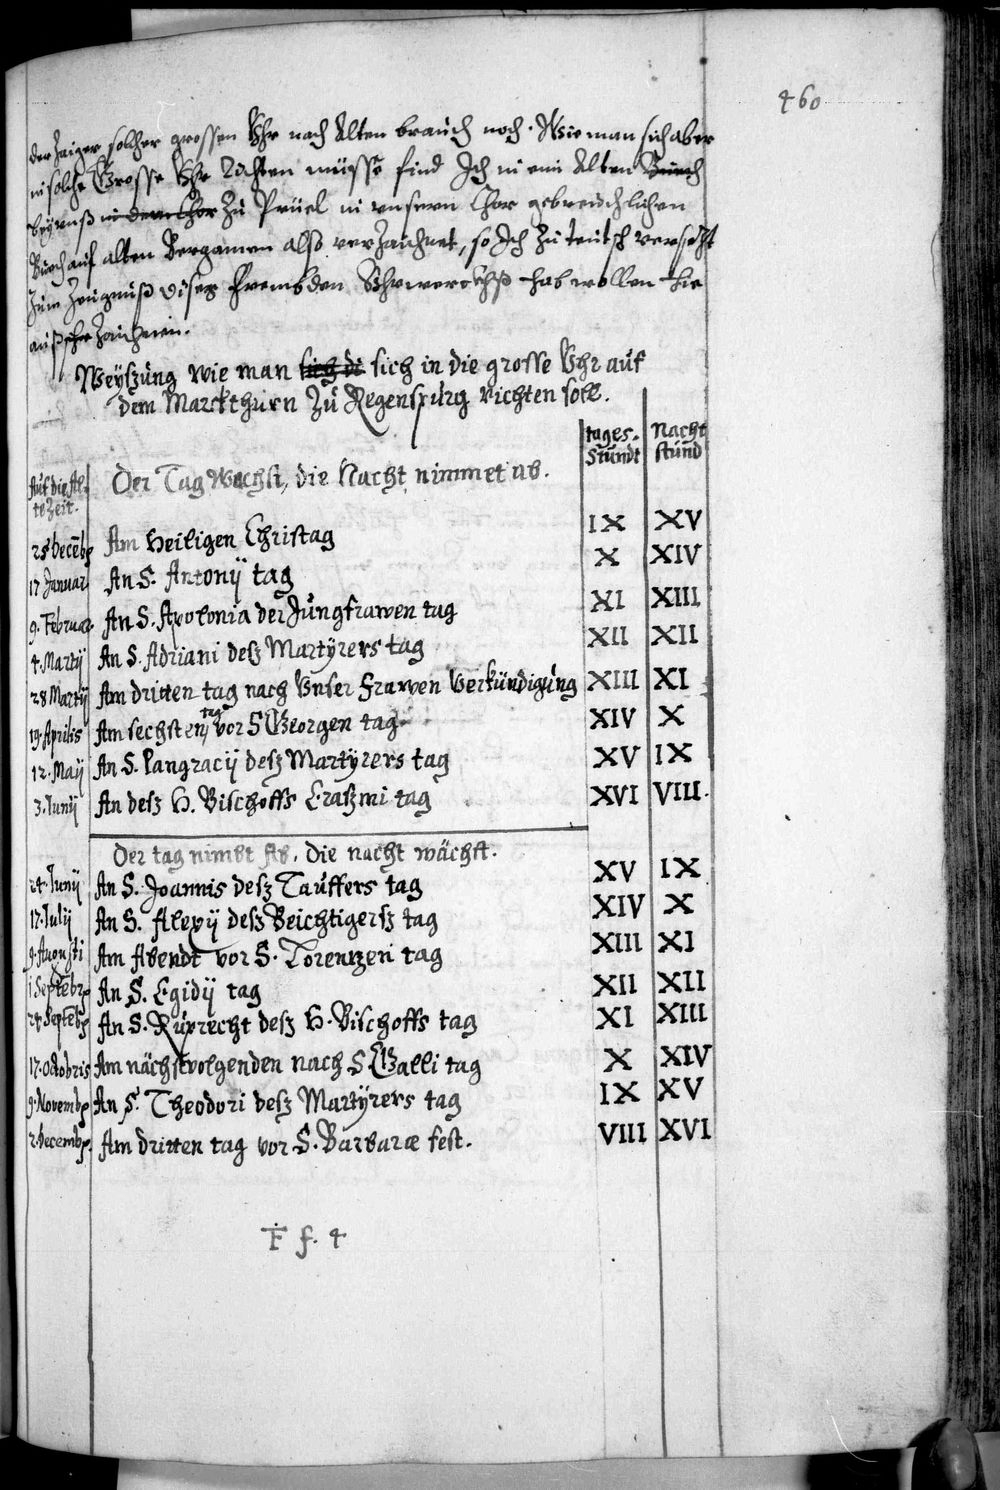 460
der Zaiger solcher grossen Vhr nach Alten brauch noch. Wie man sich aber
in solche Grosse Vhr Richten müsse find Ich in eim Alten Buech
bey vnß in dem Chor zu Prüel in vnserm Chor gebreichlichen
Buech auf alten Bergamen also verzaichnet, so Ich zu teutsch versetzt
zum Zeugnuß diser frembden Vhrwercks hab wollen hie
Weyszung wie man sich di sich in die grosse Vhr auf
dem Marckthurn Zu Regenspurg richten soll.
tages- Nacht
stundt stund
Auf die Al-
te Zeit. Der Tag Wechst, die Nacht nimmet ab.
25 Decēb Am Heiligen Christag IX XV
17 Januar An S. Antonij tag X XIV
9. Februar An S. Apolonia der Jungfrawen tag XI XIII
4. Martij An S. Adriani desz Martyrers tag XII XII
28 Martij Am dritten tag nach Vnser Frawen Verkündigung XIII XI
19. Aprilis Am sechsten tag vor S Georgen tag XIV X
12. Maij An S. Pangracij desz Martyrers tag XV IX
3. Iunij An desz H. Bischoffs Eraszmi tag XVI VIII.
Der tag nimbt Ab, die nacht wächst.
24. Iunij An S. Joannis desz Tauffers tag XV IX
17. Iulij An S. Alexij desz Beichtigersz tag XIV X
9. Augusti Am Abendt vor S. Lorentzen tag XIII XI
1 Septēbr An S. Egidij tag XII XII
24 Septēb An S. Ruprecht desz H. Bischoffs tag XI XIII
17. Octobris Am nächstvolgenden nach S Galli tag X XIV
9. Novemb An S. Theodori desz Martyrers tag IX XV
2. Decemb. Am dritten tag vor S. Barbaræ fest. VIII XVI
F f. 4